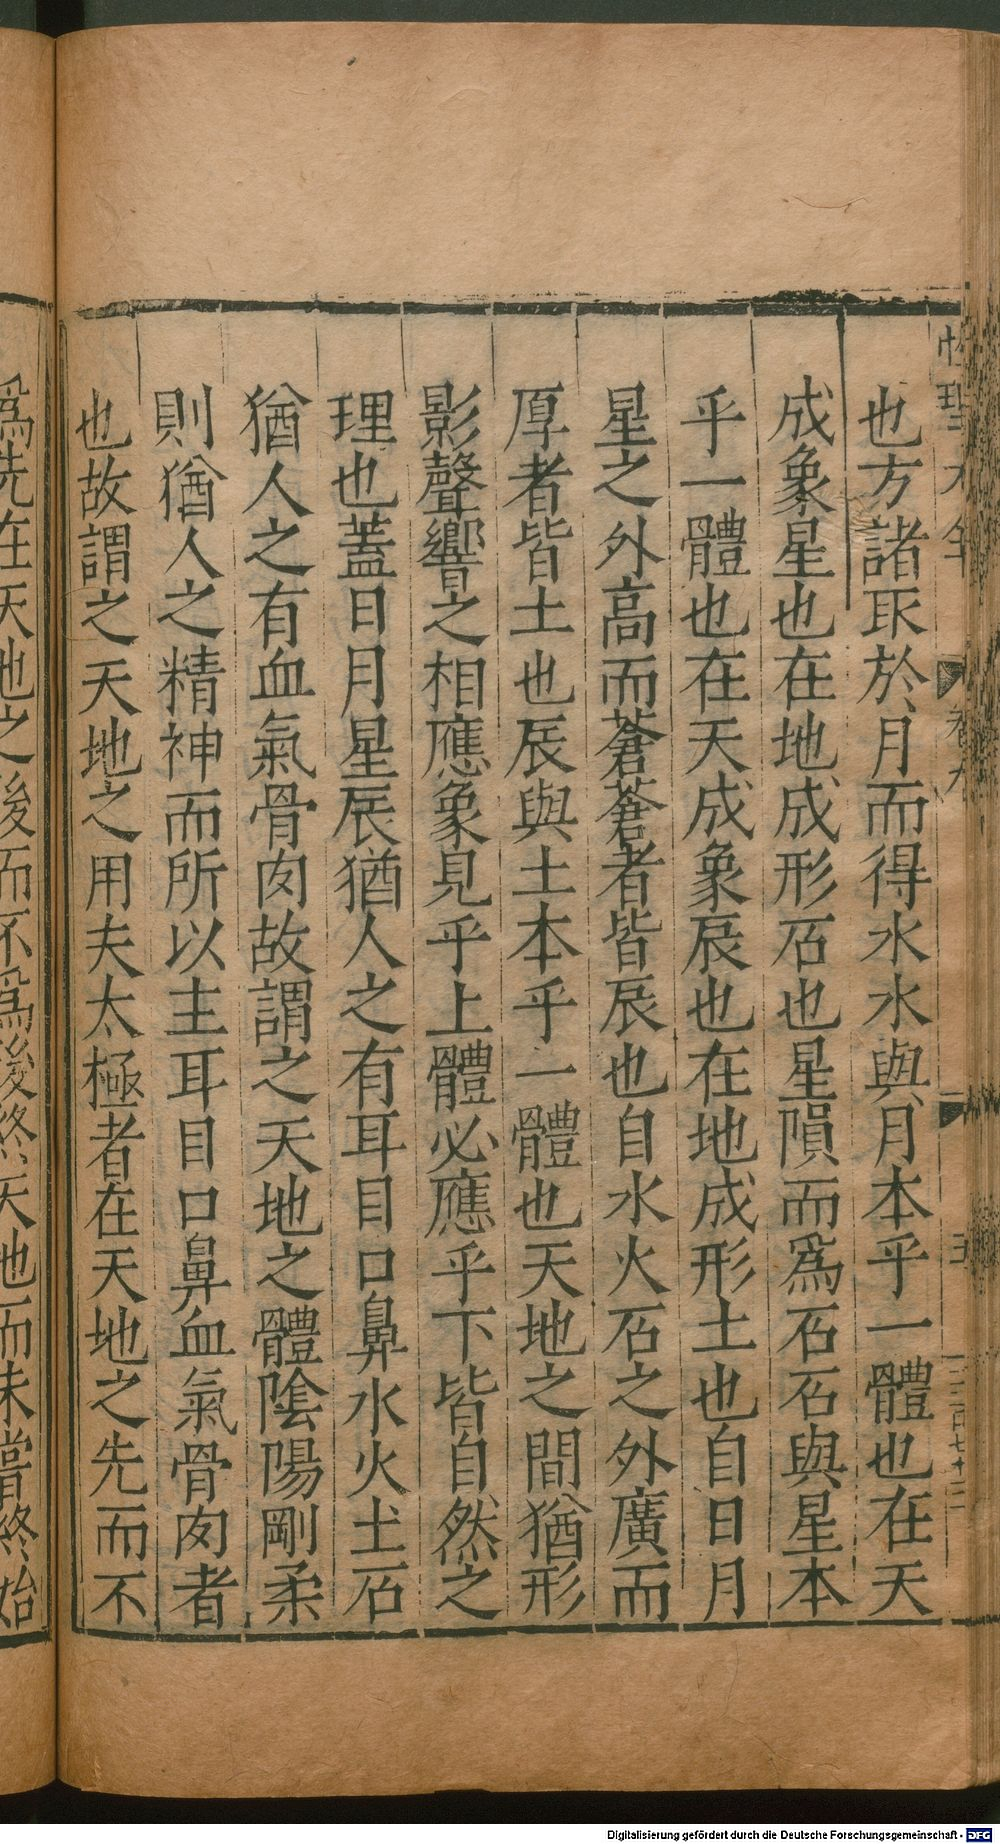 性理大全
卷九
五
也方諸取於月而得水水與月本乎一體也在天
成象星也在地成形石也星隕而爲石石與星本
乎一體也在天成象辰也在地成形土也自日月
星之外高而蒼蒼者皆辰也自水火石之外廣而
厚者皆土也辰與土本乎一體也天地之間猶形
影聲響之相應象見乎上體必應乎下皆自然之
理也蓋日月星辰猶人之有耳目口鼻水火土石
猶人之有血氣骨肉故謂之天地之體陰陽剛柔
則猶人之精神而所以主耳目口鼻血氣骨肉者
也故謂之天地之用夫太極者在天地之先而不
爲先在天地之後而不爲後終天地而未嘗終始
Digitalisierung gefördert durch die Deutsche Forschungsgemeinschaft - DFG